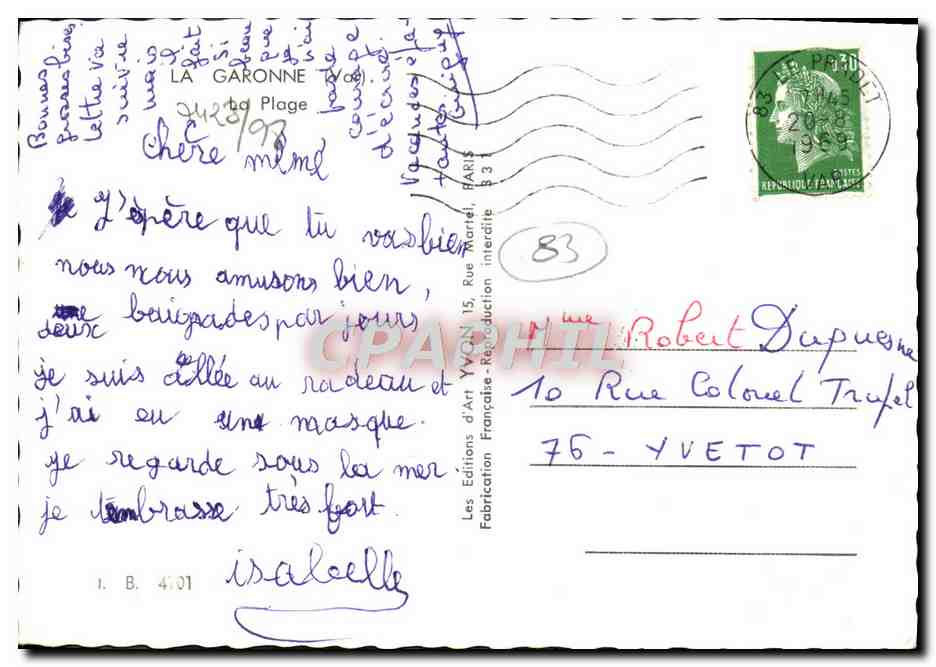 LA GARONNE (Var).
La Plage
7423/98
Chère mémé
J'épère que tu vas bien
nous nous amusons bien,
deux baignades par jours
je suis allée au radeau et
j'ai eu une masque.
je regarde sous la mer.
je t'embrasse très fort.
isabelle
I. B. 4701
Bonnes
grosses bises
lettre va
suivre
mais
il
fait
si
beau
que
j'ai
pas le
courage
d'écrire.
Les Editions d'Art YVON 15, Rue Martel, PARIS
Fabrication Française - Reproduction interdite 331
83
83 PRADET
20-8
1969
VAR
0,30
POSTES
REPUBLIQUE FRANÇAISE
Mme Robert Duquesne
10 Rue Colonel Trupel
76 - YVETOT
CPAPHIL